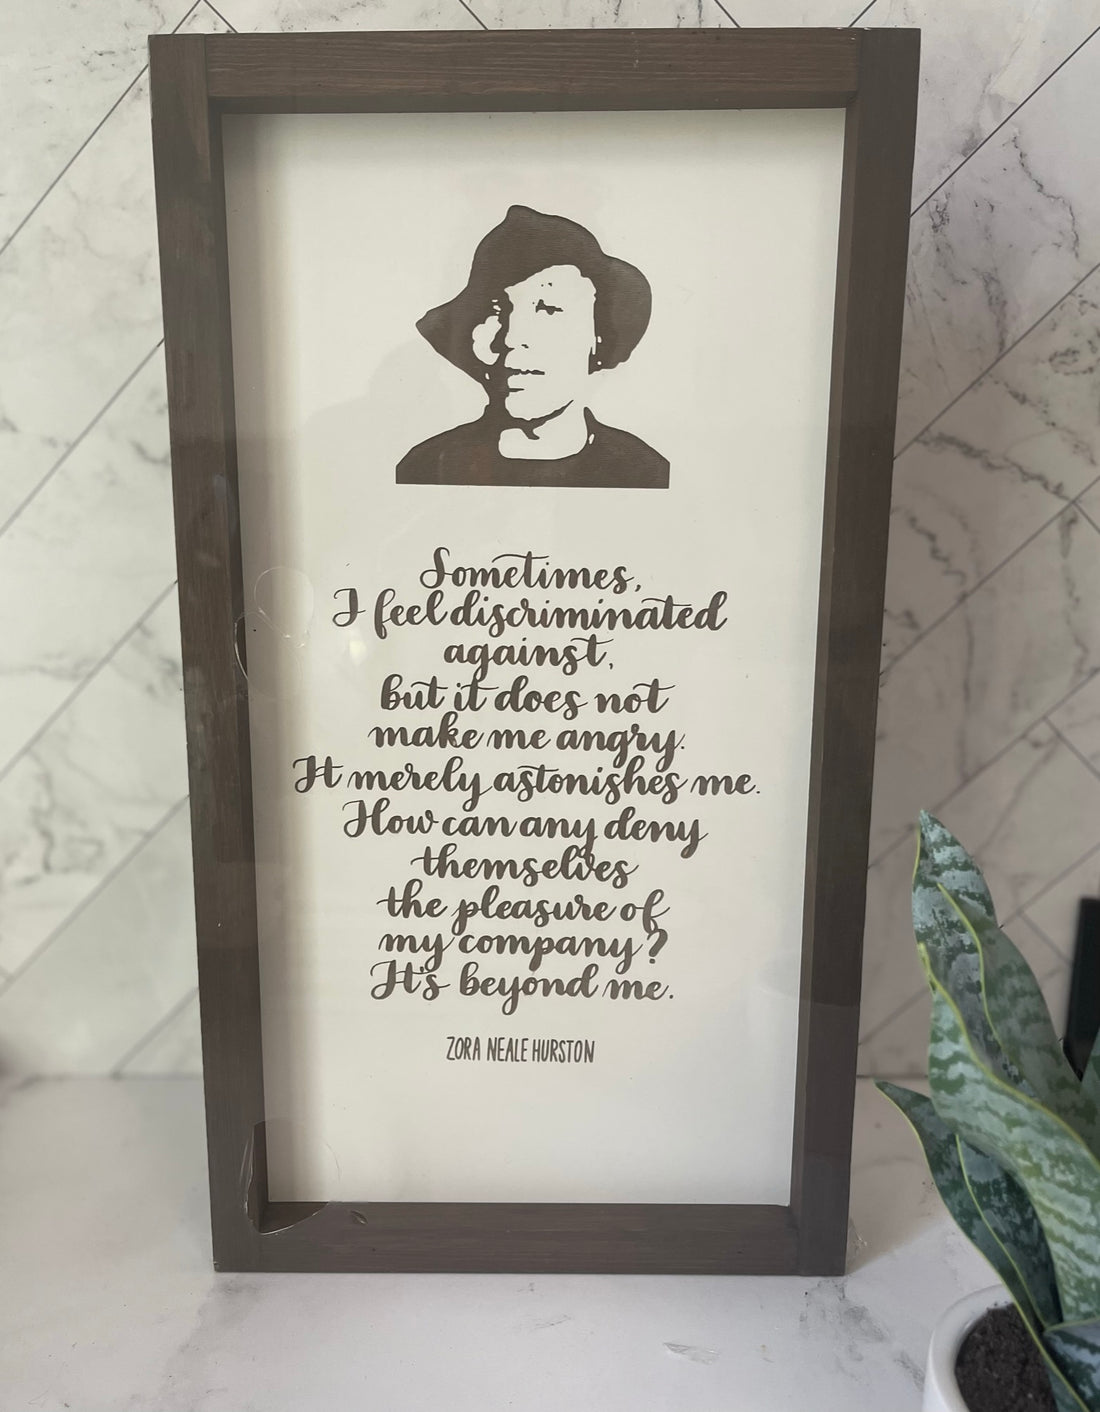 Sometimes,
I feel discriminated
against,
but it does not
make me angry.
It merely astonishes me.
How can any deny
themselves
the pleasure of
my company?
It's beyond me.
ZORA NEALE HURSTON